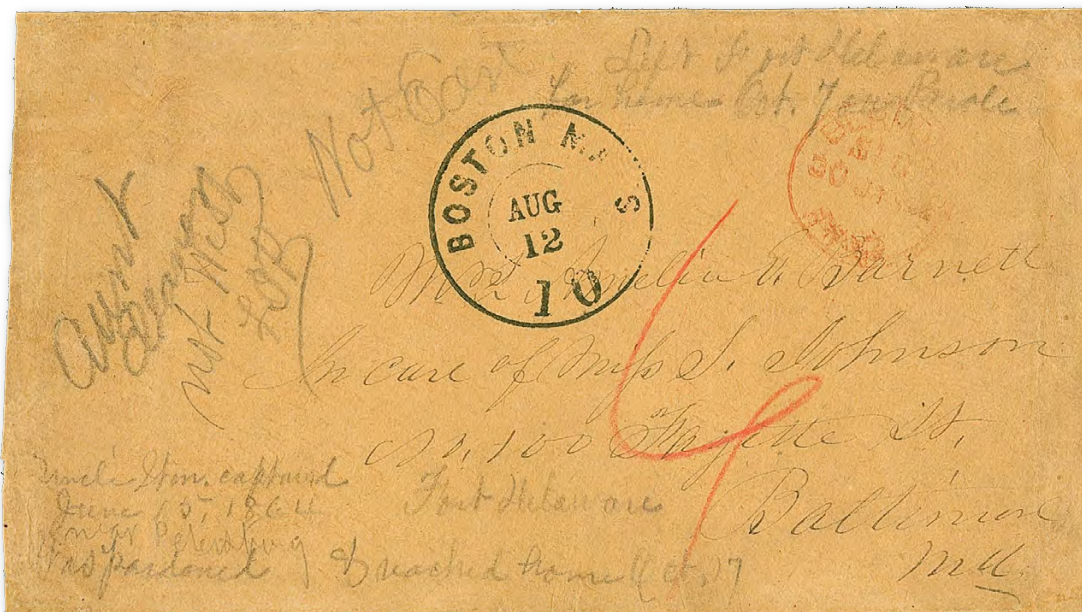 Left Fort Delaware
for home Oct. 7 on Parole
Not East
BOSTON MASS
AUG
12
10
30
aunt
not
Mrs Amelia E. Barnett
In care of Miss S. Johnson
No. 100 Fayette St.
Baltimore
Md.
Uncle captured
June 15, 1864
near Petersburg
Was pardoned & reached home Oct. 7
Fort Delaware